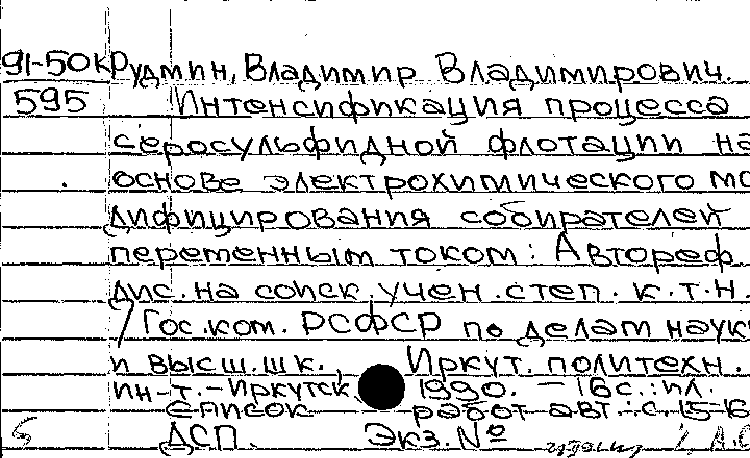 91-50к Рудмин, Владимир Владимирович.
595 Интенсификация процесса
серосульфидной флотации на
основе электрохимического мо
дифицирования собирателей
переменным током: Автореф.
дис. на соиск. учен. степ. к.т.н.
/ Гос. ком. РСФСР по делам науки
и высш. шк., Иркут. политехн.
ин-т. - Иркутск, 1990. - 16 с.: ил.
Список работ авт.: с. 15-16
ДСП. Экз. №